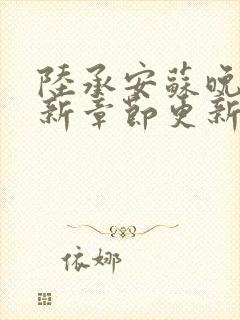 陸承安蘇晚
新章節更新
依娜